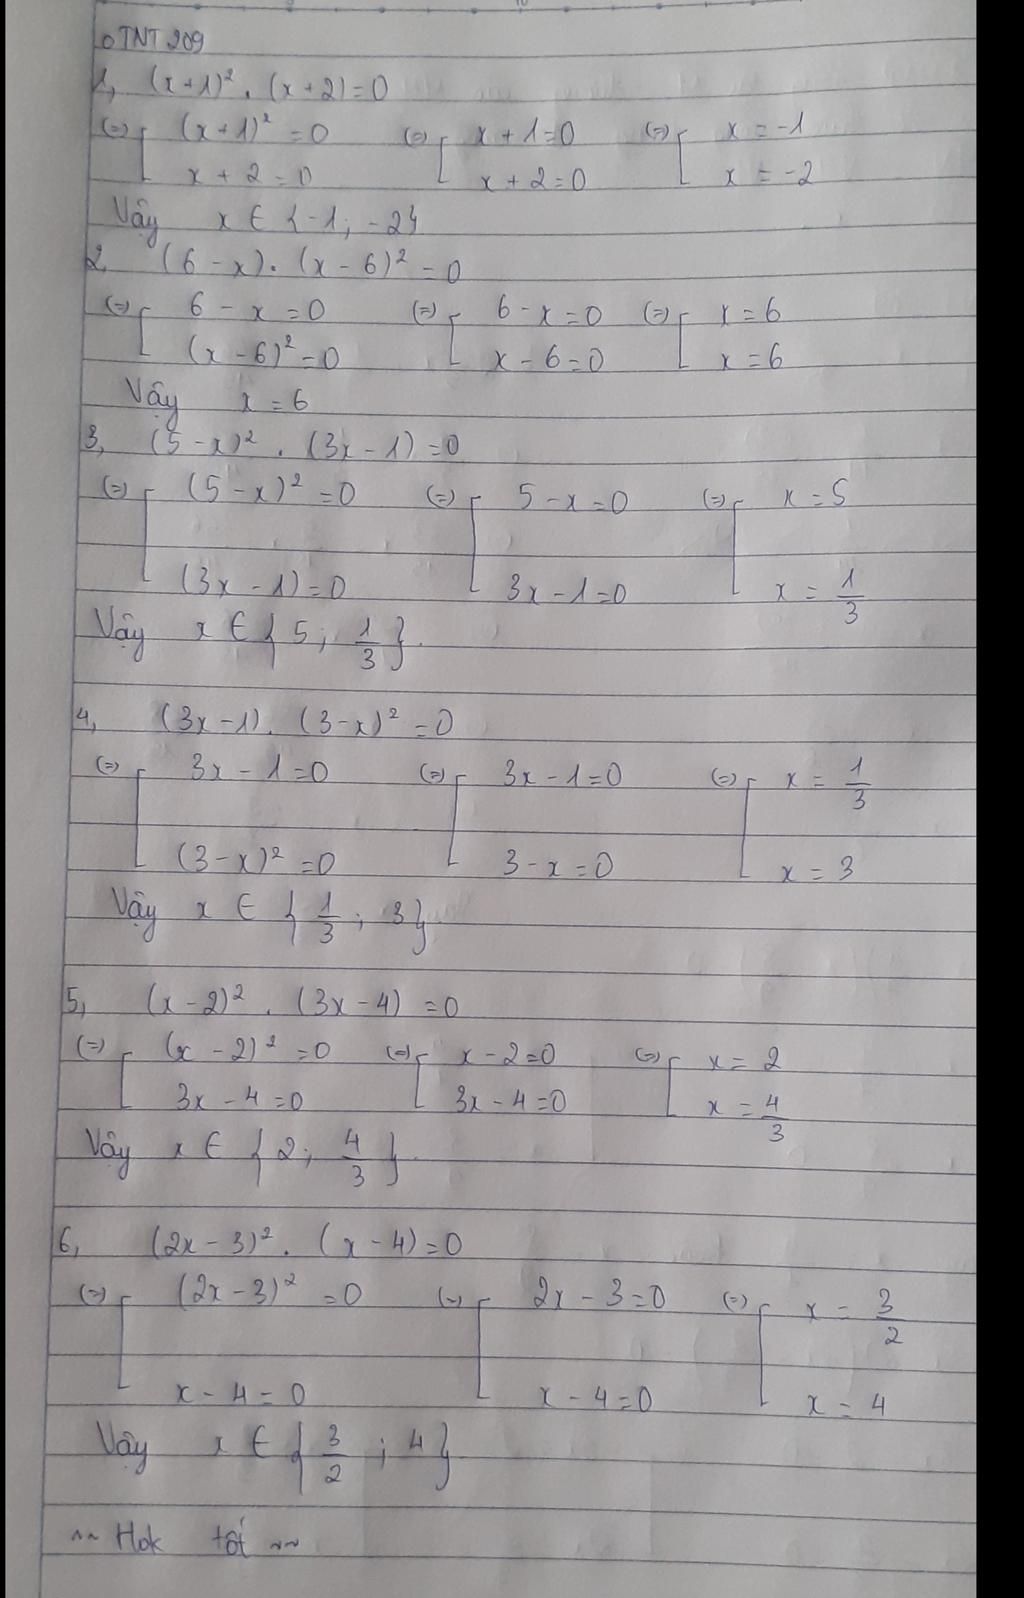 TNT 209
1, (x+1)² . (x+2)=0
(=) [ (x+1)² =0 (=) [ x+1=0 (=) [ x = -1
x + 2 = 0 x+2=0 x = -2
Vậy x ∈ {-1; -2}
2, (6-x). (x-6)² =0
(=) [ 6 - x =0 (=) [ 6-x=0 (=) [ x=6
(x-6)²=0 x-6=0 x=6
Vậy x = 6
3, (5-x)² . (3x-1)=0
(=) [ (5-x)²=0 (=) [ 5-x=0 (=) [ x=5
(3x-1)=0 3x-1=0 x = 1/3
Vậy x ∈ {5; 1/3}.
4, (3x-1). (3-x)² =0
(=) [ 3x-1=0 (=) [ 3x-1=0 (=) [ x = 1/3
(3-x)² =0 3-x=0 x = 3
Vậy x ∈ {1/3; 3}
5, (x-2)² . (3x-4) =0
(=) [ (x-2)² =0 (=) [ x-2=0 (=) [ x= 2
3x-4=0 3x-4=0 x = 4/3
Vậy x ∈ {2; 4/3}.
6, (2x-3)². (x-4)=0
(=) [ (2x-3)² =0 (=) [ 2x-3=0 (=) [ x = 3/2
x-4=0 x-4=0 x = 4
Vậy x ∈ {3/2 ; 4}
~~ Hok tốt ~~